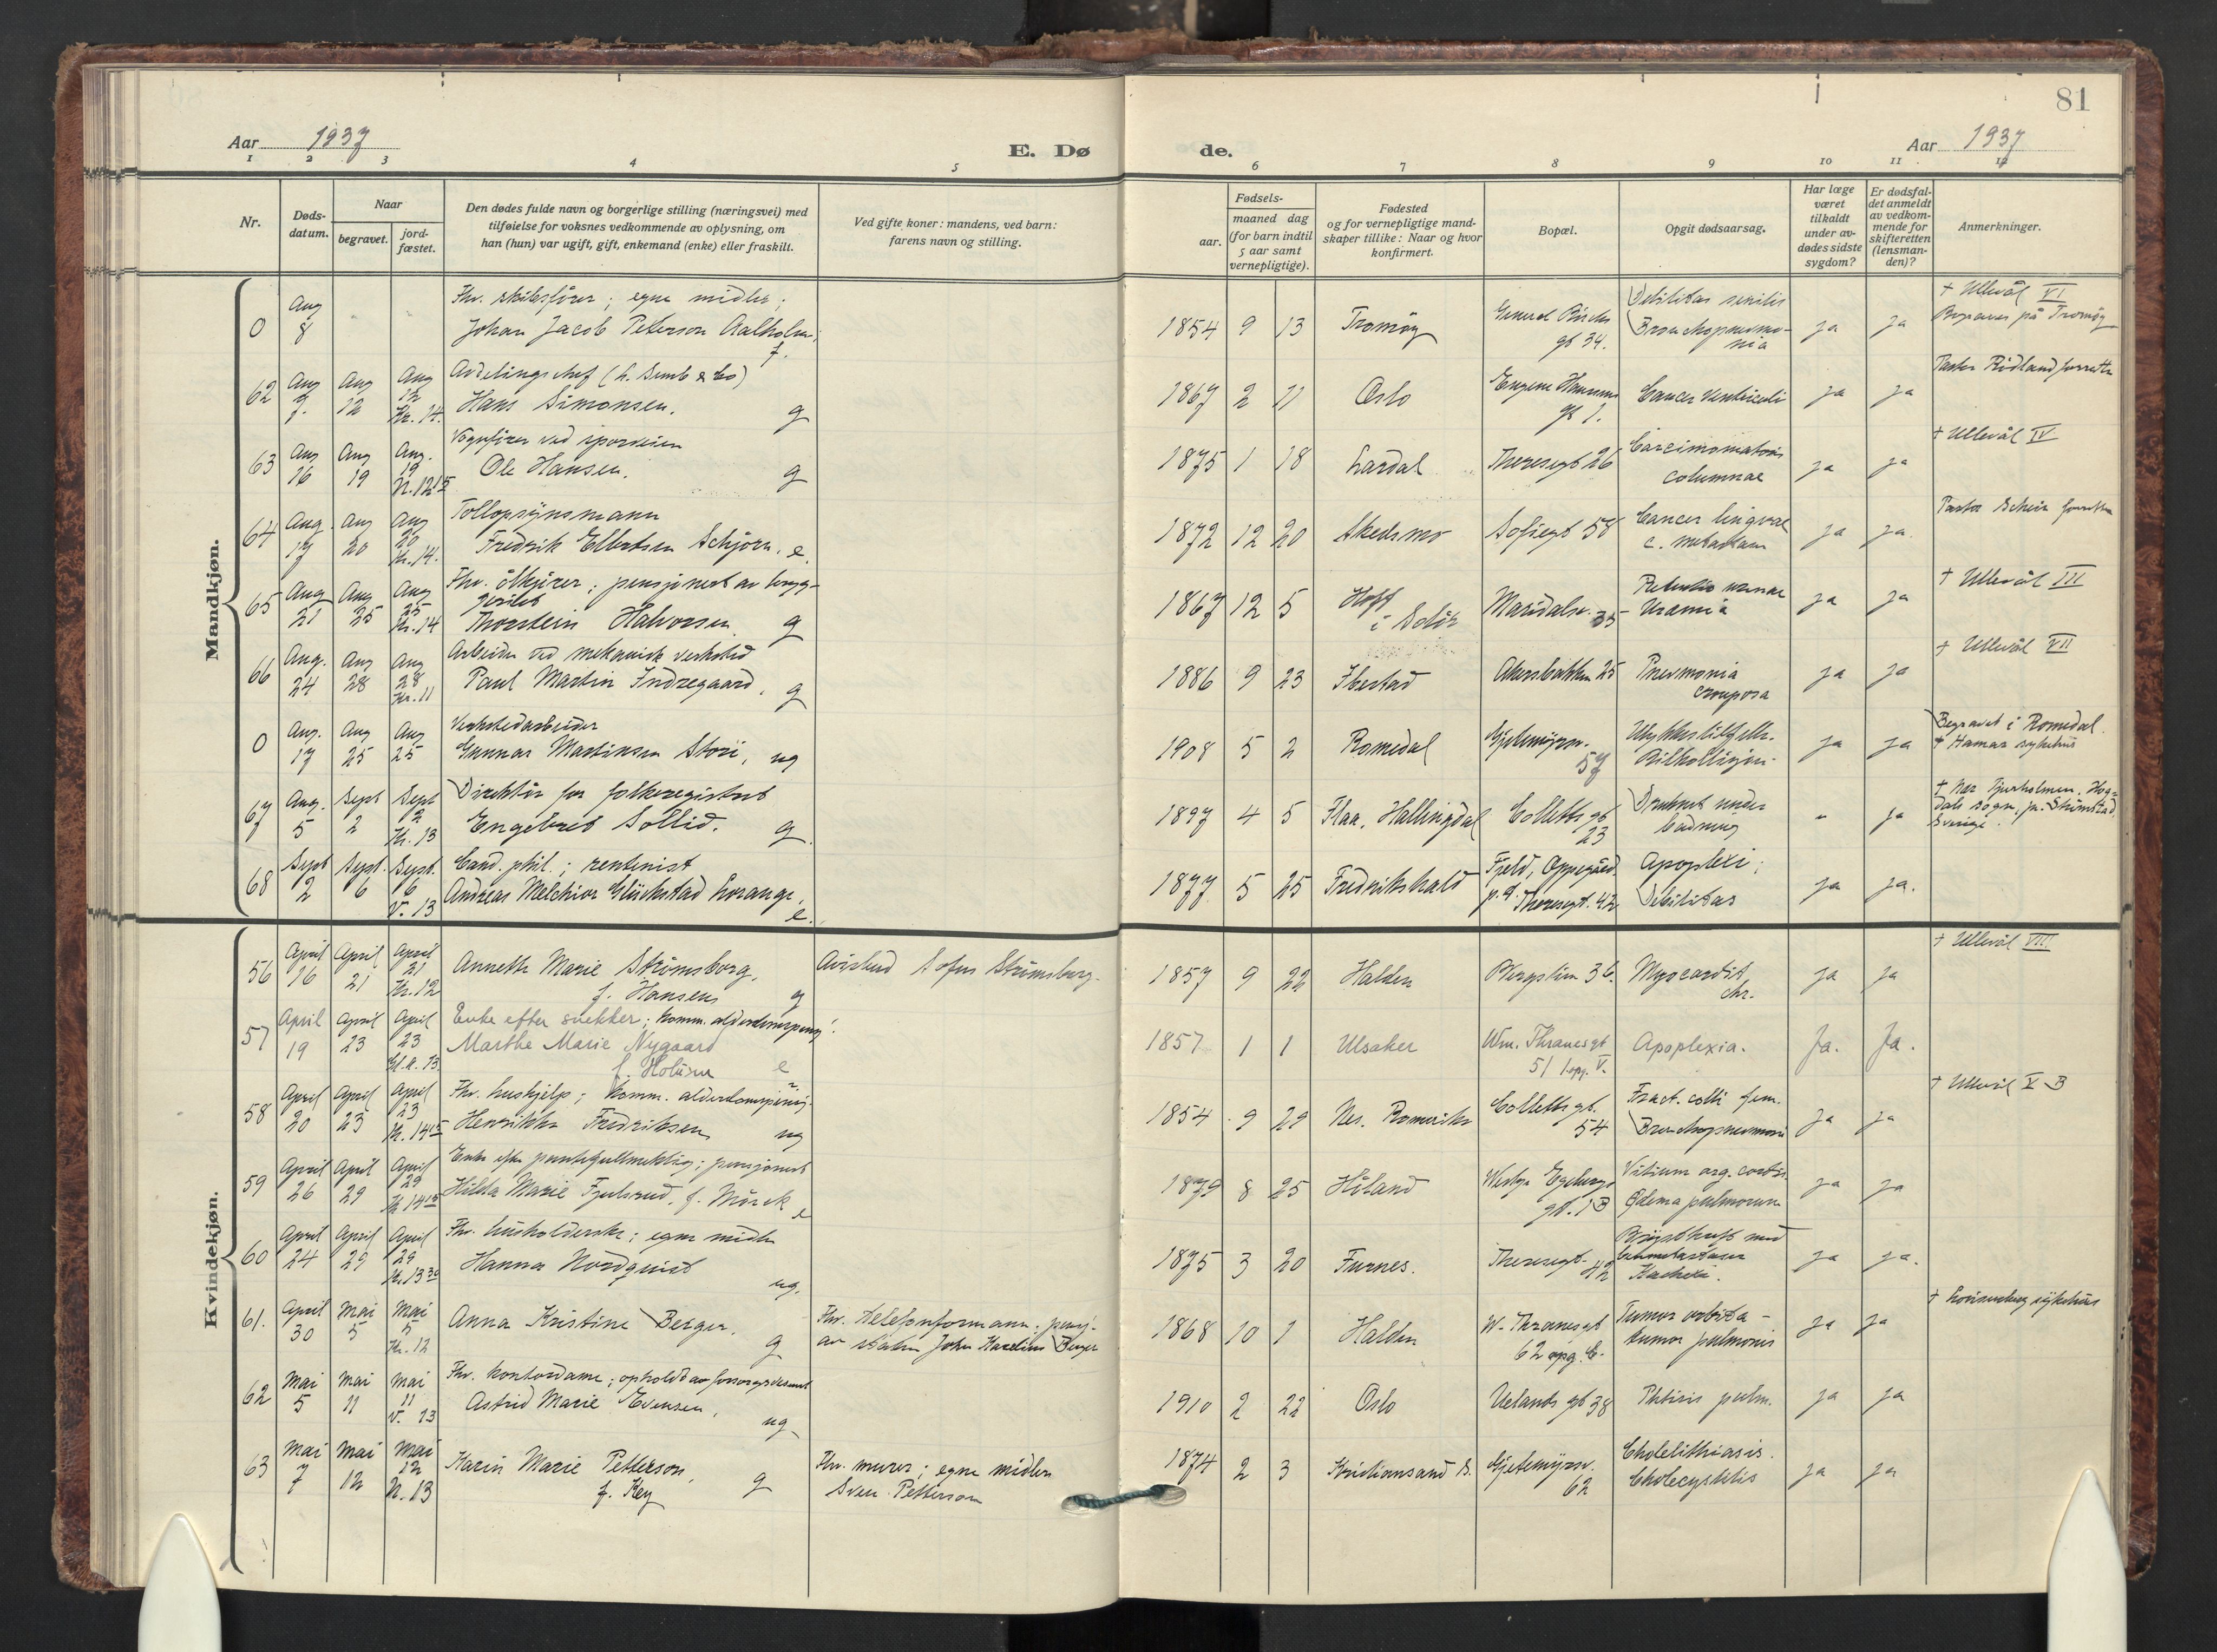 81
Aar 1937
E. Dø
de.
Aar 1937
1 2 3 4 5 6 7 8 9 10 11 12
Nr.
Døds-
datum.
Naar
begravet.
jord-
fæstet.
Den dødes fulde navn og borgerlige stilling (næringsvei) med
tilføielse for voksnes vedkommende av oplysning, om
han (hun) var ugift, gift, enkemand (enke) eller fraskilt.
Ved gifte koner: mandens, ved barn:
farens navn og stilling.
Fødsels-
aar.
maaned dag
(for barn indtil
5 aar samt
vernepligtige).
Fødested
og for vernepligtige mand-
skaper tillike: Naar og hvor
konfirmert.
Bopæl.
Opgit dødsaarsag.
Har læge
været
tilkaldt
under av-
dødes sidste
sygdom?
Er dødsfal-
det anmeldt
av vedkom-
mende for
skifteretten
(lensman-
den)?
Anmerkninger.
Mandkjøn.
Fhv. skibsfører; egne midler;
0 Aug 8 Johan Jacob Peterson Aalholm, f. 1854 9 13 Tromøy gt 34. Debilitas senilis Bronchopneumo-nia ja ja + Ullevål VI på Tromøy
Avdelingschef
62 Aug 7. Aug 12 Aug 12 Kr. 14. Hans Simonsen. g 1867 2 11 Oslo Eugene Hansens gt 1. Cancer ventriculi ja ja Pastor Rødland forrettn
Vognfører ved sporveien
63 Aug 16 Aug 19 Aug. 19 N. 12 15 Ole Hansen. g 1875 1 18 Lardal Theresegt 26 columnae ja ja + Ullevål IV
Tollopsynsmann
64 Aug. 17 Aug 20 Aug 20 Kr. 14. Fredrik Elbertsen Schjørn. e 1872 12 20 Skedsmo Sofiegt 58 Cancer linguae c. metastam ja ja. Pastor Schein forrettn
Fhv. ølkjører; pensjonert av brygg-
geriet
65 Aug 21 Aug 25 Aug 25 Kr. 14 Thorstein Halvorsen g 1867 12 5 Hoff i Solør Maridalsv. 35 Retentio urinae Uremia ja ja + Ullevål III
Arbeider ved mekanisk verksted
66 Aug. 24 Aug 28 Aug 28 Kr. 11 Paul Martin Indregaard, g 1886 9 23 Ibestad Akersbakken 25 Pneumonia crouposa ja ja + Ullevål VII
Verkstedarbeider
0 Aug. 17 Aug 25 Aug 25 Gunnar Martinsen Stori, ug 1908 5 2 Romedal Gjetemyrsv. 57 Ulykkestilfelle. Bilkollisjon. ja ja Begravet i Romedal. + Hamar sykehus
Direktør for folkeregistret
67 Aug. 5 Sept 2 Sept 2 Kr. 13 Engebret Sollid. g. 1897 4 5 Flaa, Hallingdal Colletts gt 23 Druknet under badning " ja + Nær Tjurholmen, Hog-dals sogn, pr. Strømstad, Sverige.
Cand. phil.; rentenist
68 Sept 2 Sept. 6 Sept. 6 V. 13 Andreas Melchior Glückstad Lorange, e. 1877 5 25 Fredrikshald Fjeld, Oppegård p.t. Theresegt. 42 Apoplexi; Debilitas ja ja.
Kvindekjøn.
56 April 16 April 21 April 21 Kr. 12 Annette Marie Strømsborg, f. Hansen g Sofus Strømsborg. 1857 9 22 Halden Bergslien 36. Myocardit chr. ja ja + Ullevål VIII
Enke efter snekker; komm. alderdomspensj.
57 April 19 April 23 April 23 Gl.k. 13 Marthe Marie Nygaard e 1857 1 1 Ulsaker Wm. Thranesgt 51 opg. V. Apoplexia. Ja. Ja.
Fhv. hushjelp; komm. alderdomspensj.
58 April 20 April 23 April 23 Kr. 14 15 Henrikke Fredriksen, ug 1854 9 29 Nes. Romerike Colletts gt. 54 Fract. colli fem. Bronchopneumoni ja ja + Ullevål X B
pensjonert
59 April 26 April 29 April 29 14 15 Hilda Marie Fjulsrud, f. Mørck e 1879 8 25 Høland gt. 13 Vitium org. cordis Ødema pulmonum ja ja
Fhv. husholderske; egne midler
60 April 24 April 29 April 29 Kr. 13 30 Hanna Nordquist ug. 1875 3 20 Furnes. Theresegt. 42 Brystkreft med Kacheksi. ja ja.
61. April 30 Mai 5 Mai 5 Kr. 12 Anna Kristine Berger, g Fhv. telefonformann; pensj. av staten John Karelius Berger 1868 10 1 Halden W. Thranesgt 62 opg. C. Tumor orbita - tumor pulmonis ja ja + Lovisenberg sykehus
Fhv. kontordame; opholdt av forsorgsvesenet
62 Mai 5 Mai 11 Mai 11 V. 13 Astrid Marie Evensen, ug. 1910 2 22 Oslo Uelands gt 38 Phtisis pulm. ja ja
63 Mai 7 Mai 12 Mai 12 N. 13 Karin Marie Petterson, f. Key g Fhv. murer; egne midler Sven Petterson 1874 2 3 Kristiansand S. Gjetemyrsv. 62 Cholelithiasis. Cholecystitis ja ja